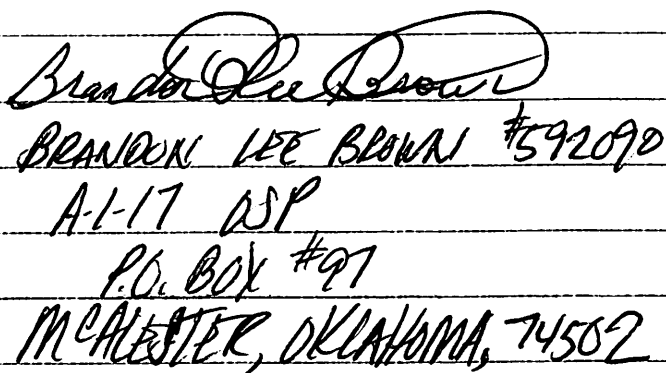 Brandon Lee Brown
BRANDON LEE BROWN #592090
A-1-17 OSP
P.O. BOX #97
MCALESTER, OKLAHOMA, 74502